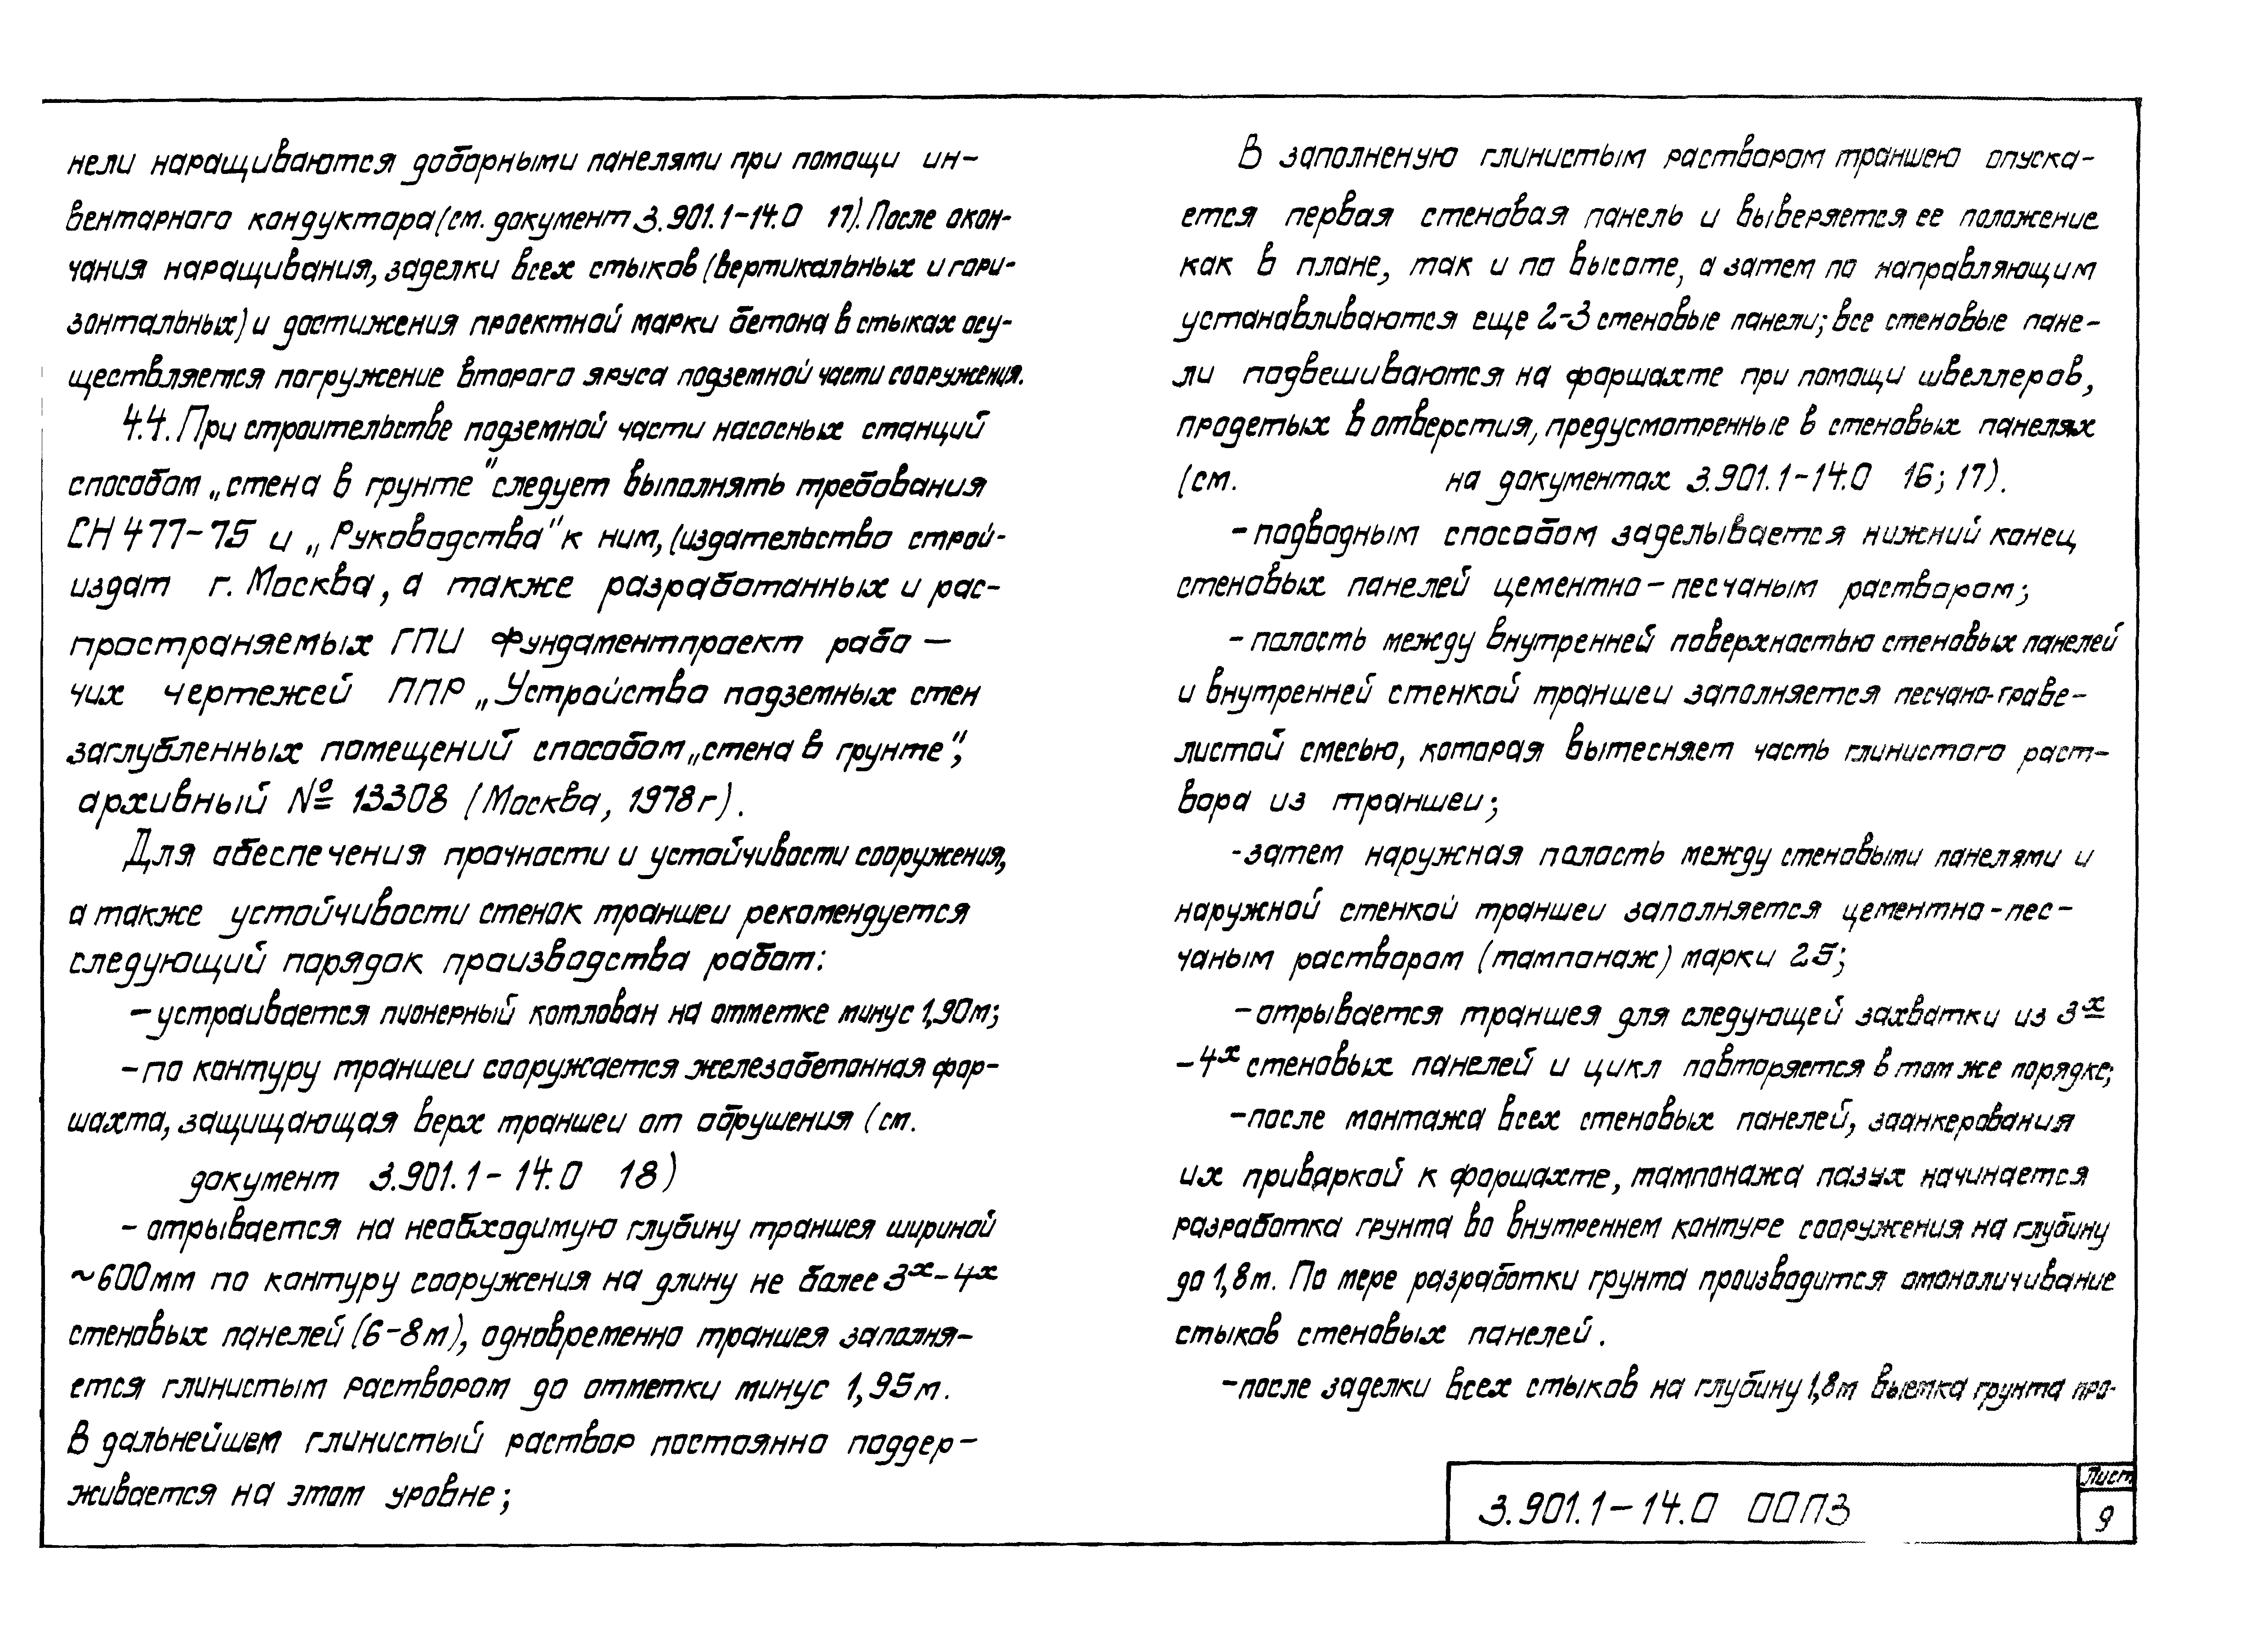 нели наращиваются доборными панелями при помощи ин-
вентарного кондуктора (см. документ 3.901.1-14.0 17). После окон-
чания наращивания, заделки всех стыков (вертикальных и гори-
зонтальных) и достижения проектной марки бетона в стыках осу-
ществляется погружение второго яруса подземной части сооружения.
4.4. При строительстве подземной части насосных станций
способом „стена в грунте" следует выполнять требования
СН 477-75 и „Руководства" к ним, (издательство строй-
издат г. Москва, а также разработанных и рас-
пространяемых ГПИ Фундаментпроект рабо-
чих чертежей ППР „Устройство подземных стен
заглубленных помещений способом „стена в грунте",
архивный № 13308 (Москва, 1978г).
Для обеспечения прочности и устойчивости сооружения,
а также устойчивости стенок траншеи рекомендуется
следующий порядок производства работ:
- устраивается пионерный котлован на отметке минус 1,90м;
- по контуру траншеи сооружается железобетонная фор-
шахта, защищающая верх траншеи от обрушения (см.
документ 3.901.1-14.0 18)
- отрывается на необходимую глубину траншея шириной
~600мм по контуру сооружения на длину не более 3х-4х
стеновых панелей (6-8м), одновременно траншея заполня-
ется глинистым раствором до отметки минус 1,95м.
В дальнейшем глинистый раствор постоянно поддер-
живается на этом уровне;
В заполненую глинистым раствором траншею опуска-
ется первая стеновая панель и выверяется ее положение
как в плане, так и по высоте, а затем по направляющим
устанавливаются еще 2-3 стеновые панели; все стеновые пане-
ли подвешиваются на форшахте при помощи швеллеров,
продетых в отверстия, предусмотренные в стеновых панелях
(см. на документах 3.901.1-14.0 16; 17).
- подводным способом заделывается нижний конец
стеновых панелей цементно-песчаным раствором;
- полость между внутренней поверхностью стеновых панелей
и внутренней стенкой траншеи заполняется песчано-граве-
листой смесью, которая вытесняет часть глинистого раст-
вора из траншеи;
- затем наружная полость между стеновыми панелями и
наружной стенкой траншеи заполняется цементно-пес-
чаным раствором (тампонаж) марки 25;
- отрывается траншея для следующей захватки из 3х
-4х стеновых панелей и цикл повторяется в том же порядке;
- после монтажа всех стеновых панелей, заанкерования
их приваркой к форшахте, тампонажа пазух начинается
разработка грунта во внутреннем контуре сооружения на глубину
до 1,8м. По мере разработки грунта производится омоноличивание
стыков стеновых панелей.
- после заделки всех стыков на глубину 1,8м выемка грунта про-
3.901.1-14.0 00ПЗ
Лист
9